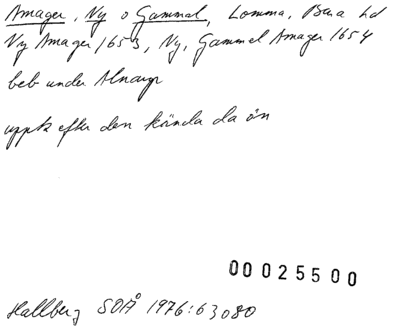 Amager, Ny o Gammal, Lomma, Bara hd
Ny Amager 1653, Ny, Gammel Amager 1654
beb under Alnarp
uppk efter den kända da ön
00 025500
Hallberg SOÅ 1976:63 080